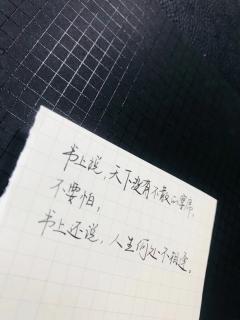 书上说,天下没有不散的宴席,
不要怕,
书上还说,人生何处不相逢。